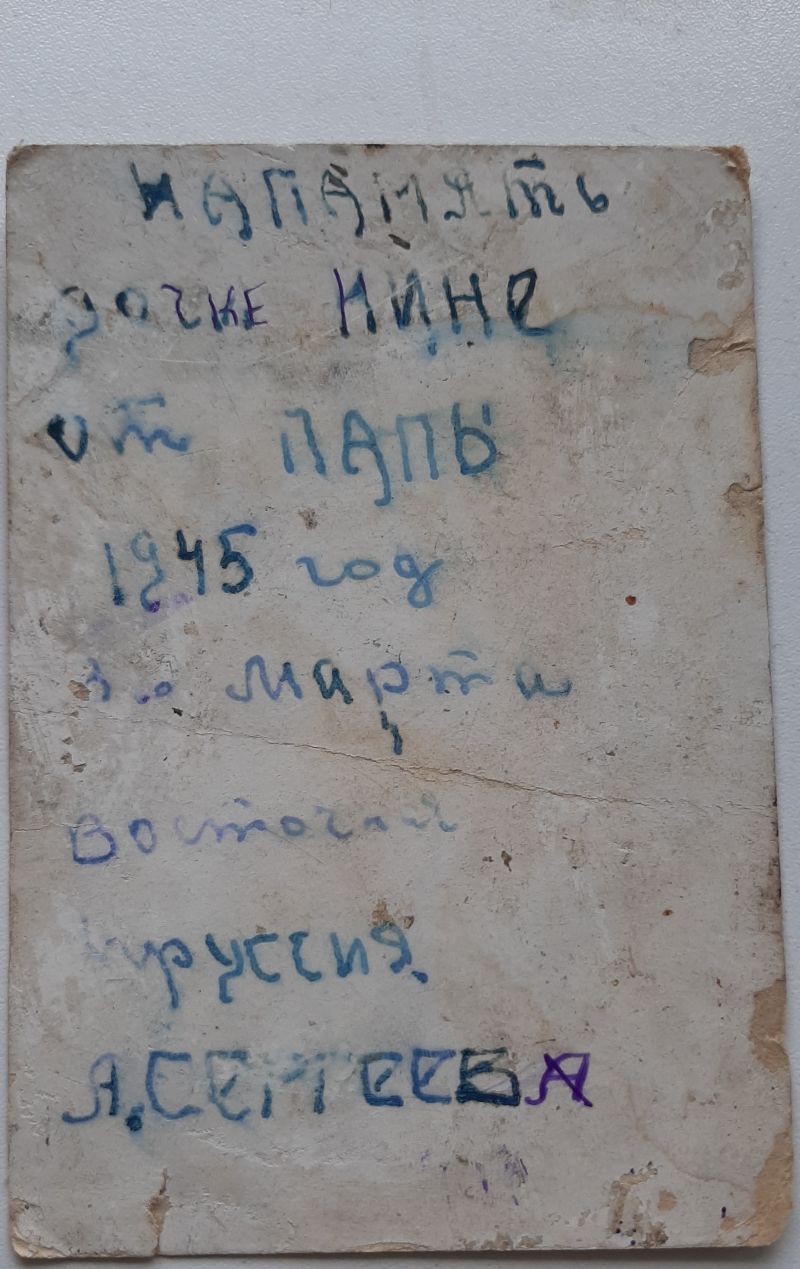 НАПАМЯТЬ
дочке НИНе
от ПАПЫ
1945 год
марта
Восточная
пруссия.
А.СЕРГЕЕВА